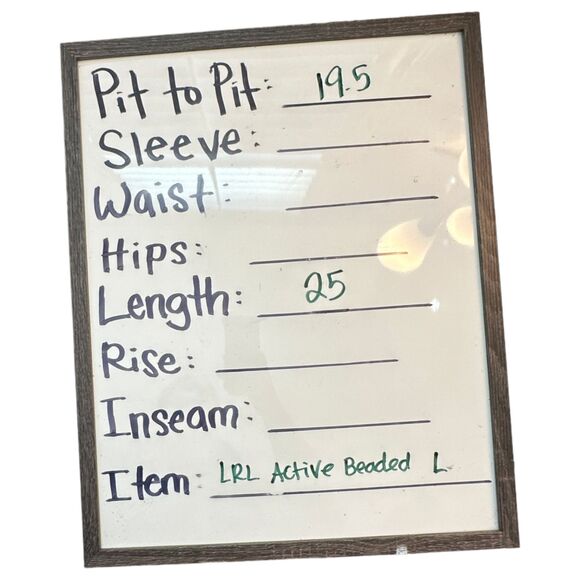 Pit to Pit: 19.5
Sleeve:
Waist:
Hips:
Length: 25
Rise:
Inseam:
Item: LRL Active Beaded L